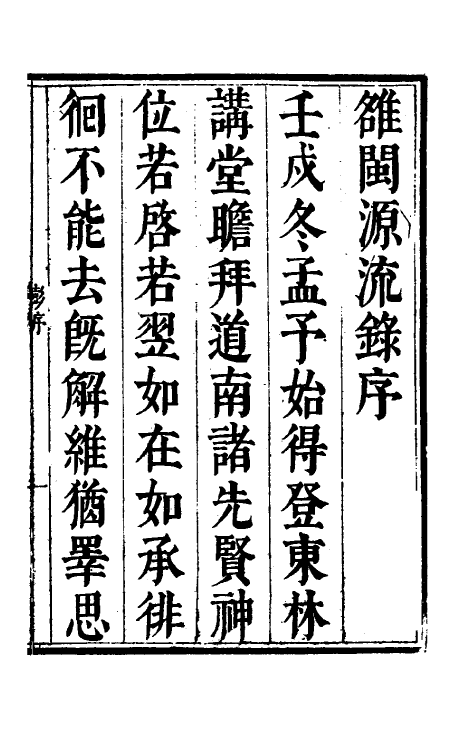 雒閩源流錄序
壬戌冬孟予始得登東林
講堂瞻拜道南諸先賢神
位若啓若翌如在如承徘
徊不能去旣解維猶睪思
彭序
一